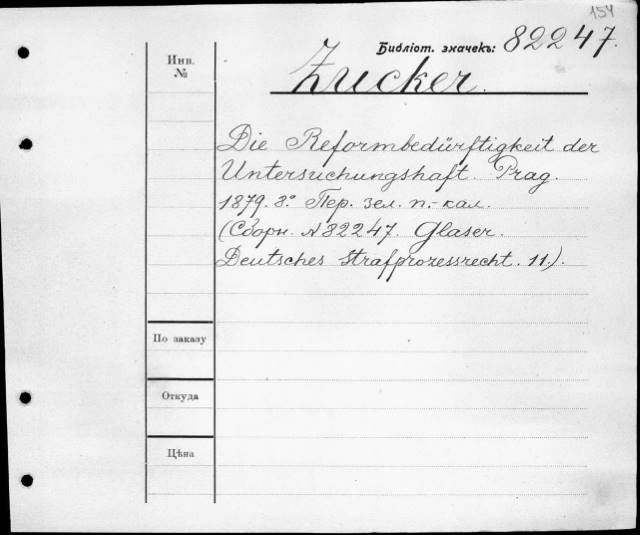 154
Библіот. значекъ: 82247.
Инв.
№
Zucker.
Die Reformbedürftigkeit der
Untersuchungshaft. Prag.
1879. 8.° Пер. зел. п.-кал.
(Сборн. № 82247. Glaser.
Deutsches Strafprozessrecht. 11.).
По заказу
Откуда
Цѣна